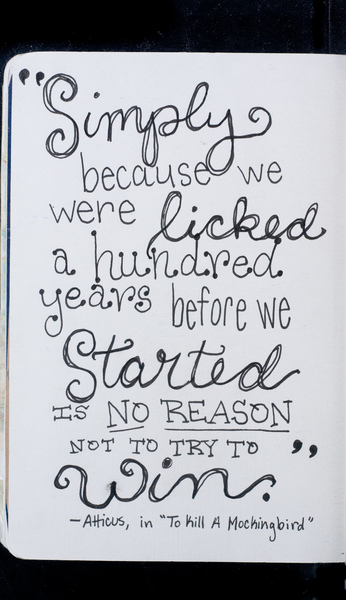 "Simply
because we
were licked
a hundred
years before we
Started
IS NO REASON
NOT TO TRY TO
Win."
-Atticus, in "To Kill A Mockingbird"